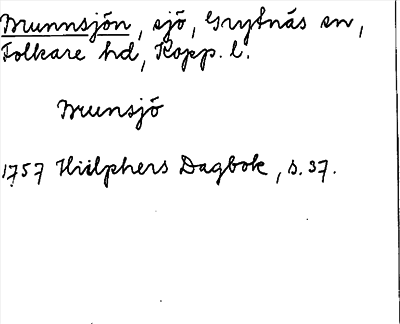 Brunnsjön, sjö, Grytnäs sn,
Folkare hd, Kopp. l.
Brunsjö
1757 Hülphers Dagbok, s. 37.